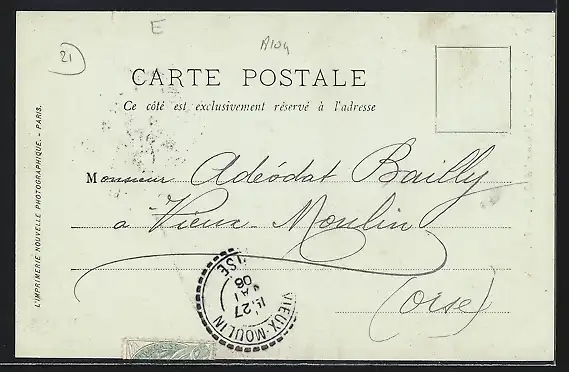 E
21
CARTE POSTALE
Ce côté est exclusivement réservé à l'adresse
Monsieur Adéodat Bailly
a Vieux-Moulin
(Oise)
L'IMPRIMERIE NOUVELLE PHOTOGRAPHIQUE. - PARIS.
VIEUX-MOULIN
OISE
27
MAI
06